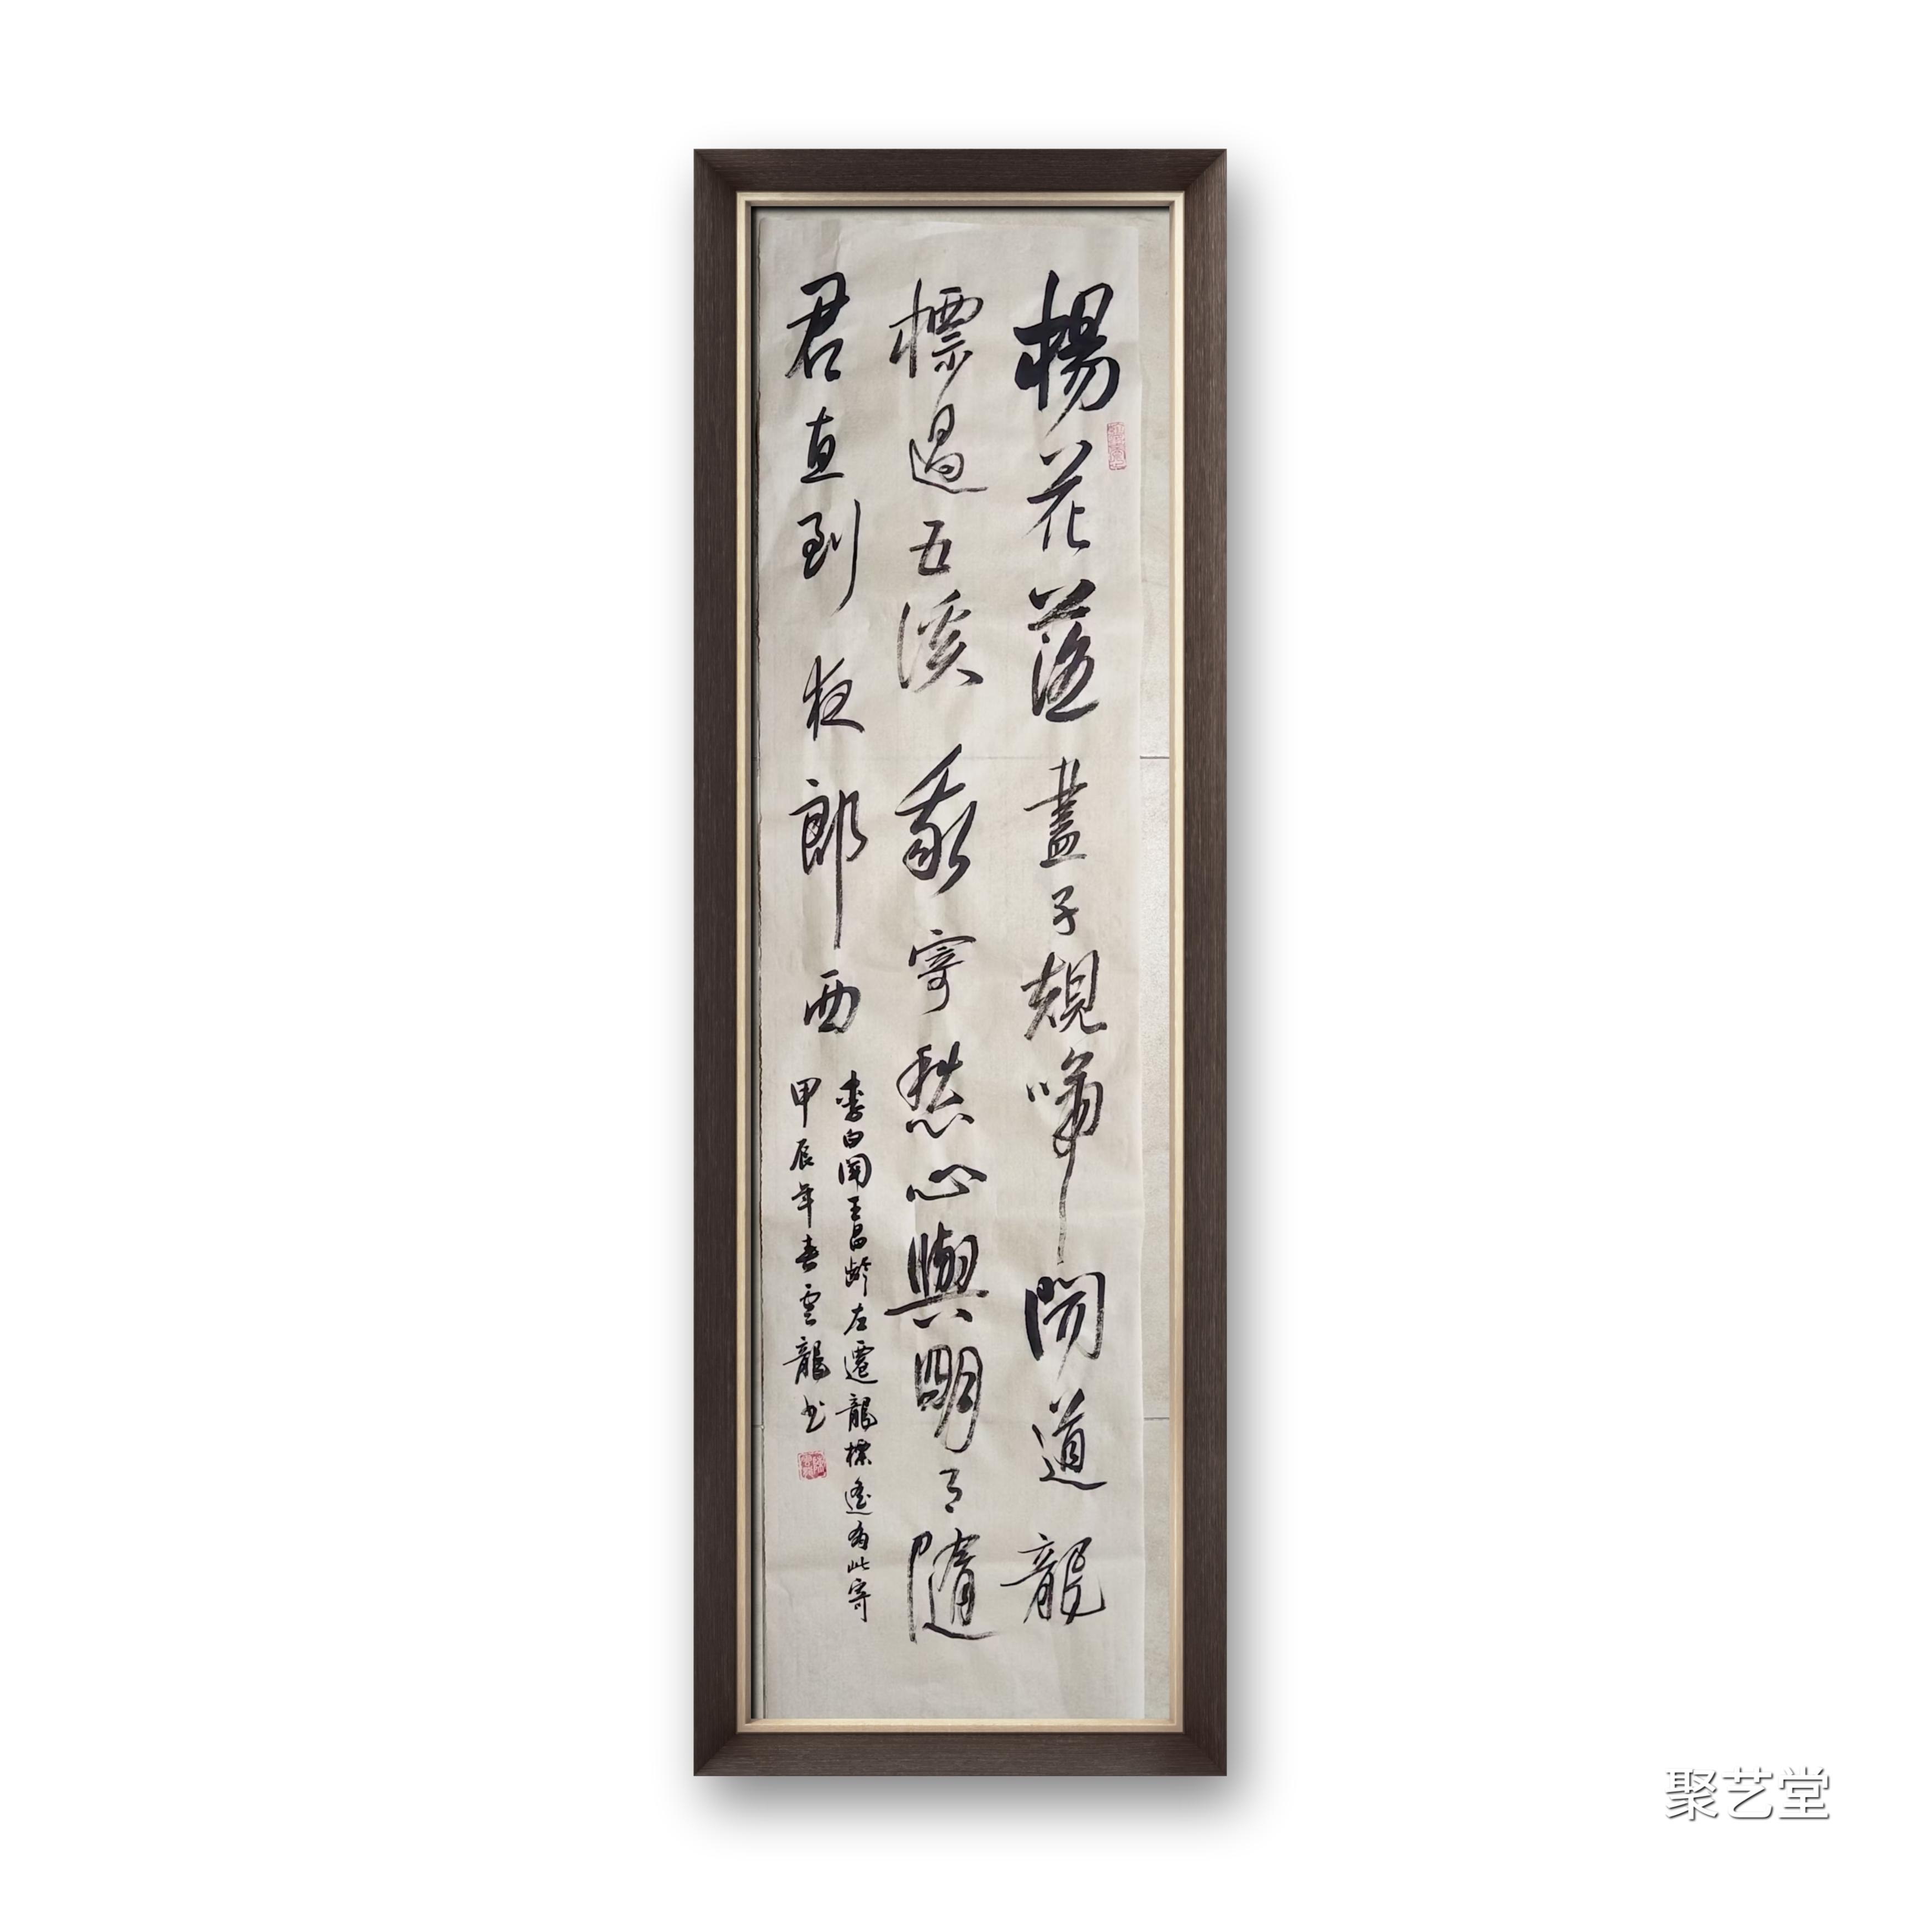 楊花落盡子規啼聞道龍
標過五溪我寄愁心與明月隨
君直到夜郎西
李白聞王昌齡左遷龍標遙有此寄
甲辰年春雲龍书
聚艺堂